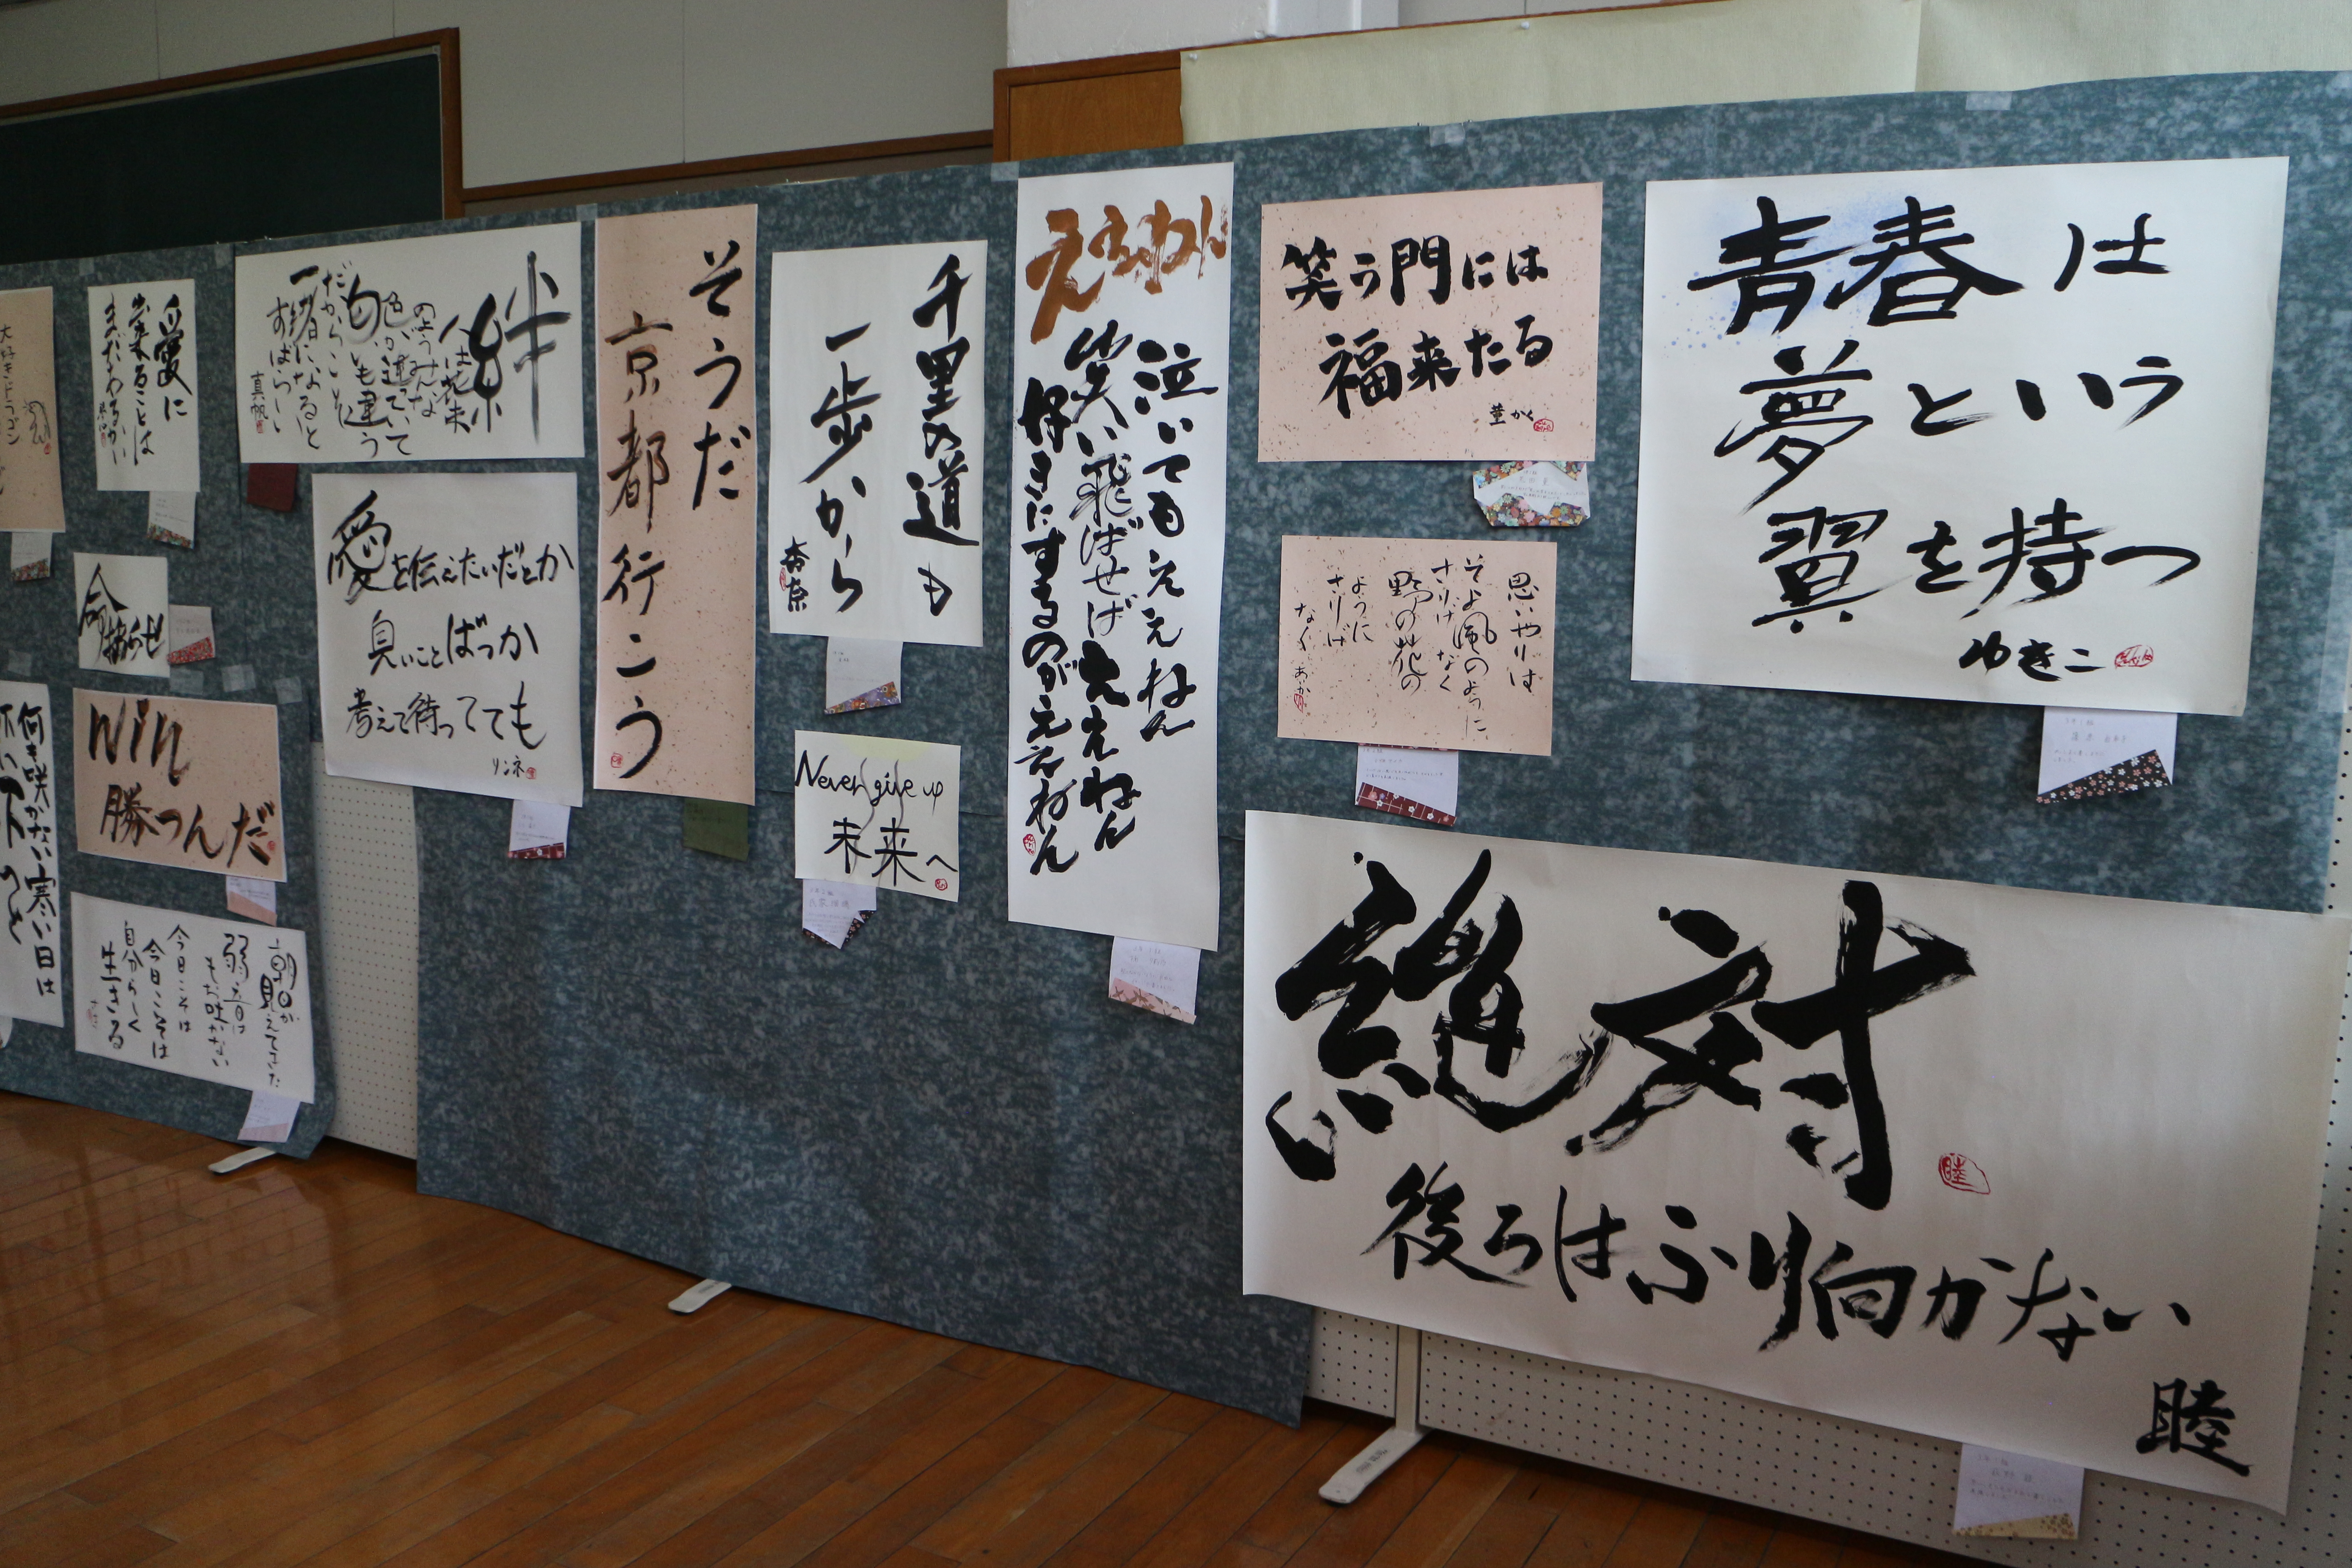 青春は
夢という
翼を持つ
ゆきこ
絶対
後ろはふり向かない
睦
笑う門には
福来たる
菫かく
思いやりは
そよ風のように
さりげなく
野の花の
ように
さりげ
なく
えぇねん
泣いてもええねん
笑い飛ばせばええねん
好きにするのがええねん
千里の道も
一歩から
杏奈
Never give up
未来へ
そうだ
京都行こう
絆
人は花束
のようみんな
色が違っていて
匂いも違う
だ
だからこそ
一緒になると
すばらしい
真帆
愛を伝えたいだとか
臭いことばっか
考えて待ってても
リンネ
愛に
出来ることは
まだあるかい
命
拗らせ
win
勝つんだ
朝日が
見えてきた
弱音は
もお吐かない
今日こそは
今日こそは
自分らしく
生きる
何も咲かない寒い日は
大好きドラゴン